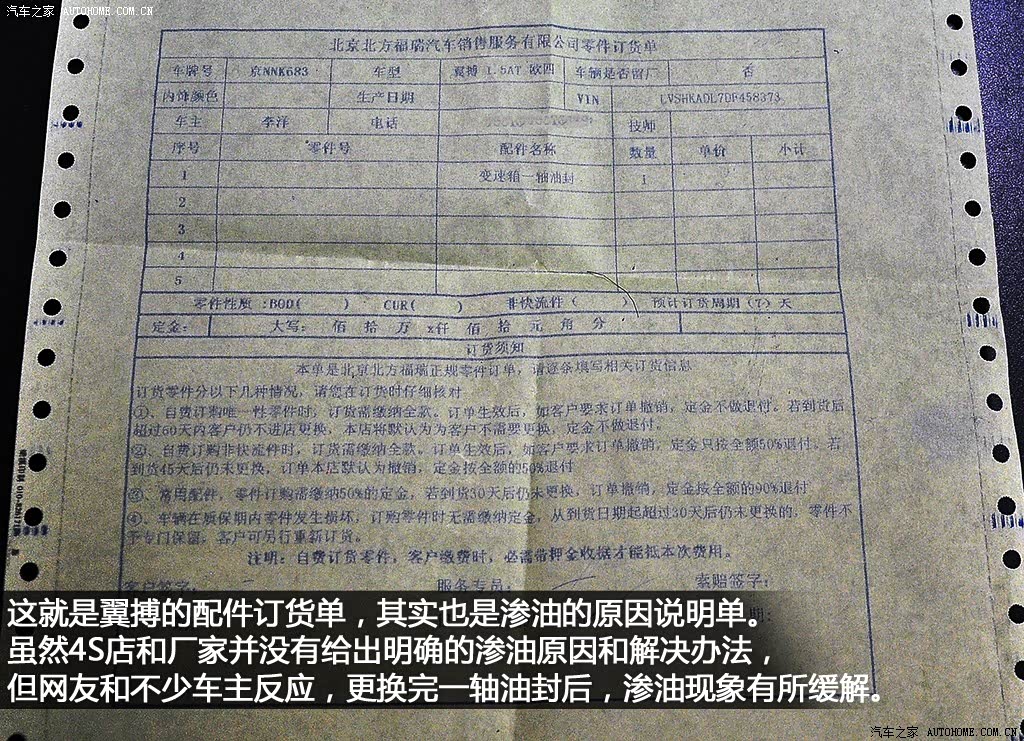 汽车之家 AUTOHOME.COM.CN
北京北方福瑞汽车销售服务有限公司零件订货单
车牌号 京NNK683 车型 翼搏 1.5AT 欧四 车辆是否留厂 否
内饰颜色 生产日期 VIN LVSHKADL7DF458373
车主 李洋 电话 技师
序号 零件号 配件名称 数量 单价 小计
1 变速箱一轴油封 1
2
3
4
5
零件性质:BOO( ) CUR( ) 非快流件( ) 预计订货周期(7)天
定金: 大写: 佰 拾 万 x仟 佰 拾 元 角 分
订货须知
本单是北京北方福瑞正规零件订单,请逐条填写相关订货信息
订货零件分以下几种情况,请您在订货时仔细核对
①、自费订购唯一性零件时,订货需缴纳全款。订单生效后,如客户要求订单撤销,定金不做退付。若到货后
超过60天内客户仍不进店更换,本店将默认为为客户不需要更换,定金不做退付。
②、自费订购非快流件时,订货需缴纳全款。订单生效后,如客户要求订单撤销,定金只按全额50%退付。若
到货45天后仍未更换,订单本店默认为撤销,定金按全额的50%退付
③、常用配件,零件订购需缴纳50%的定金,若到货30天后仍未更换,订单撤销,定金按全额的90%退付
④、车辆在质保期内零件发生损坏,订购零件时无需缴纳定金,从到货日期起超过30天后仍未更换的,零件不
予专门保留,客户可另行重新订货。
注明:自费订货零件,客户缴费时,必需带押金收据才能抵本次费用。
客户签字: 服务专员: 索赔签字:
期:
这就是翼搏的配件订货单,其实也是渗油的原因说明单。
虽然4S店和厂家并没有给出明确的渗油原因和解决办法,
但网友和不少车主反应,更换完一轴油封后,渗油现象有所缓解。
汽车之家 AUTOHOME.COM.CN